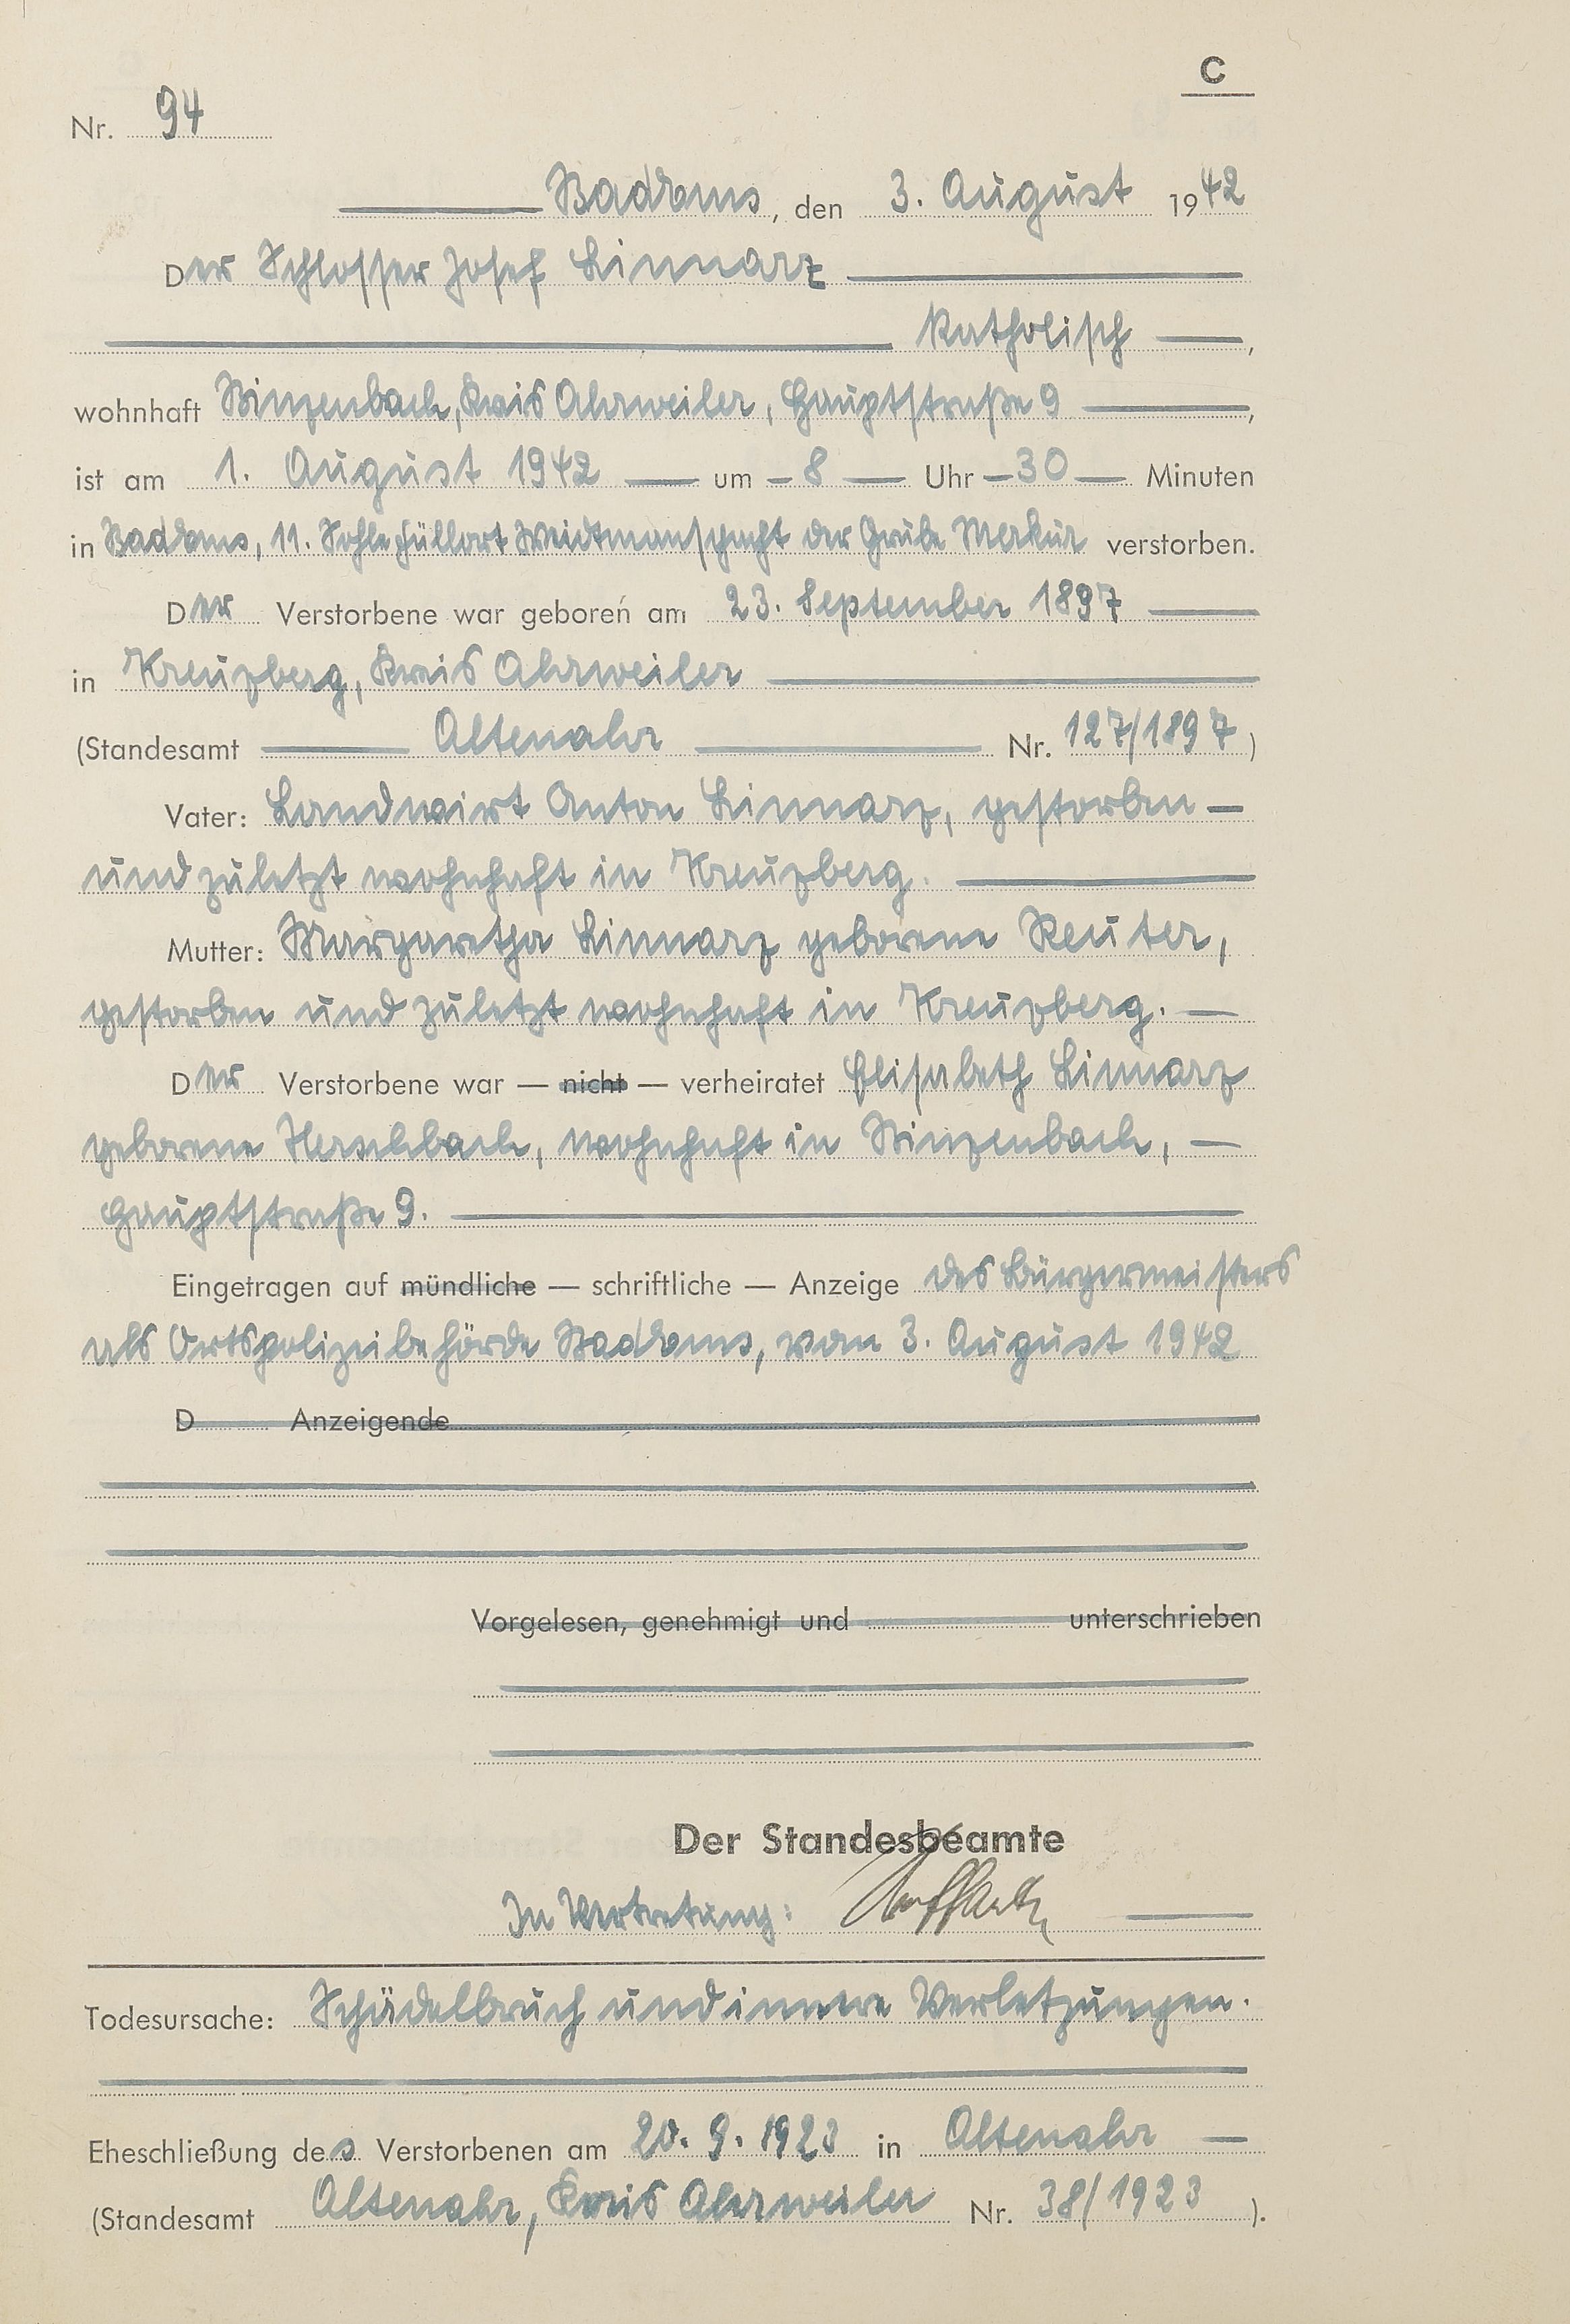 C
Nr. 94
Bad Ems, den 3. August 1942
Der Schlosser Josef Linnarz
katholisch,
wohnhaft Binzenbach, Kreis Ahrweiler, Hauptstraße 9,
ist am 1. August 1942 um 8 Uhr 30 Minuten
in Bad Ems, 11. Sohle Füllort Weidtmanschacht der Grube Merkur verstorben.
Der Verstorbene war geboren am 23. September 1897
in Kreuzberg, Kreis Ahrweiler
(Standesamt Altenahr Nr. 127/1897)
Vater: Landwirt Anton Linnarz, gestorben
und zuletzt wohnhaft in Kreuzberg.
Mutter: Margaretha Linnarz geborene Reuter,
gestorben und zuletzt wohnhaft in Kreuzberg.
Der Verstorbene war — nicht — verheiratet Elisabeth Linnarz
geborene Herschbach, wohnhaft in Binzenbach,
Hauptstraße 9.
Eingetragen auf mündliche — schriftliche — Anzeige des Bürgermeisters
als Ortspolizeibehörde Bad Ems, vom 3. August 1942
D Anzeigende
Vorgelesen, genehmigt und unterschrieben
Der Standesbeamte
In Vertretung:
Todesursache: Schädelbruch und innere Verletzungen.
Eheschließung des Verstorbenen am 20. 9. 1923 in Altenahr
(Standesamt Altenahr, Kreis Ahrweiler Nr. 38/1923).